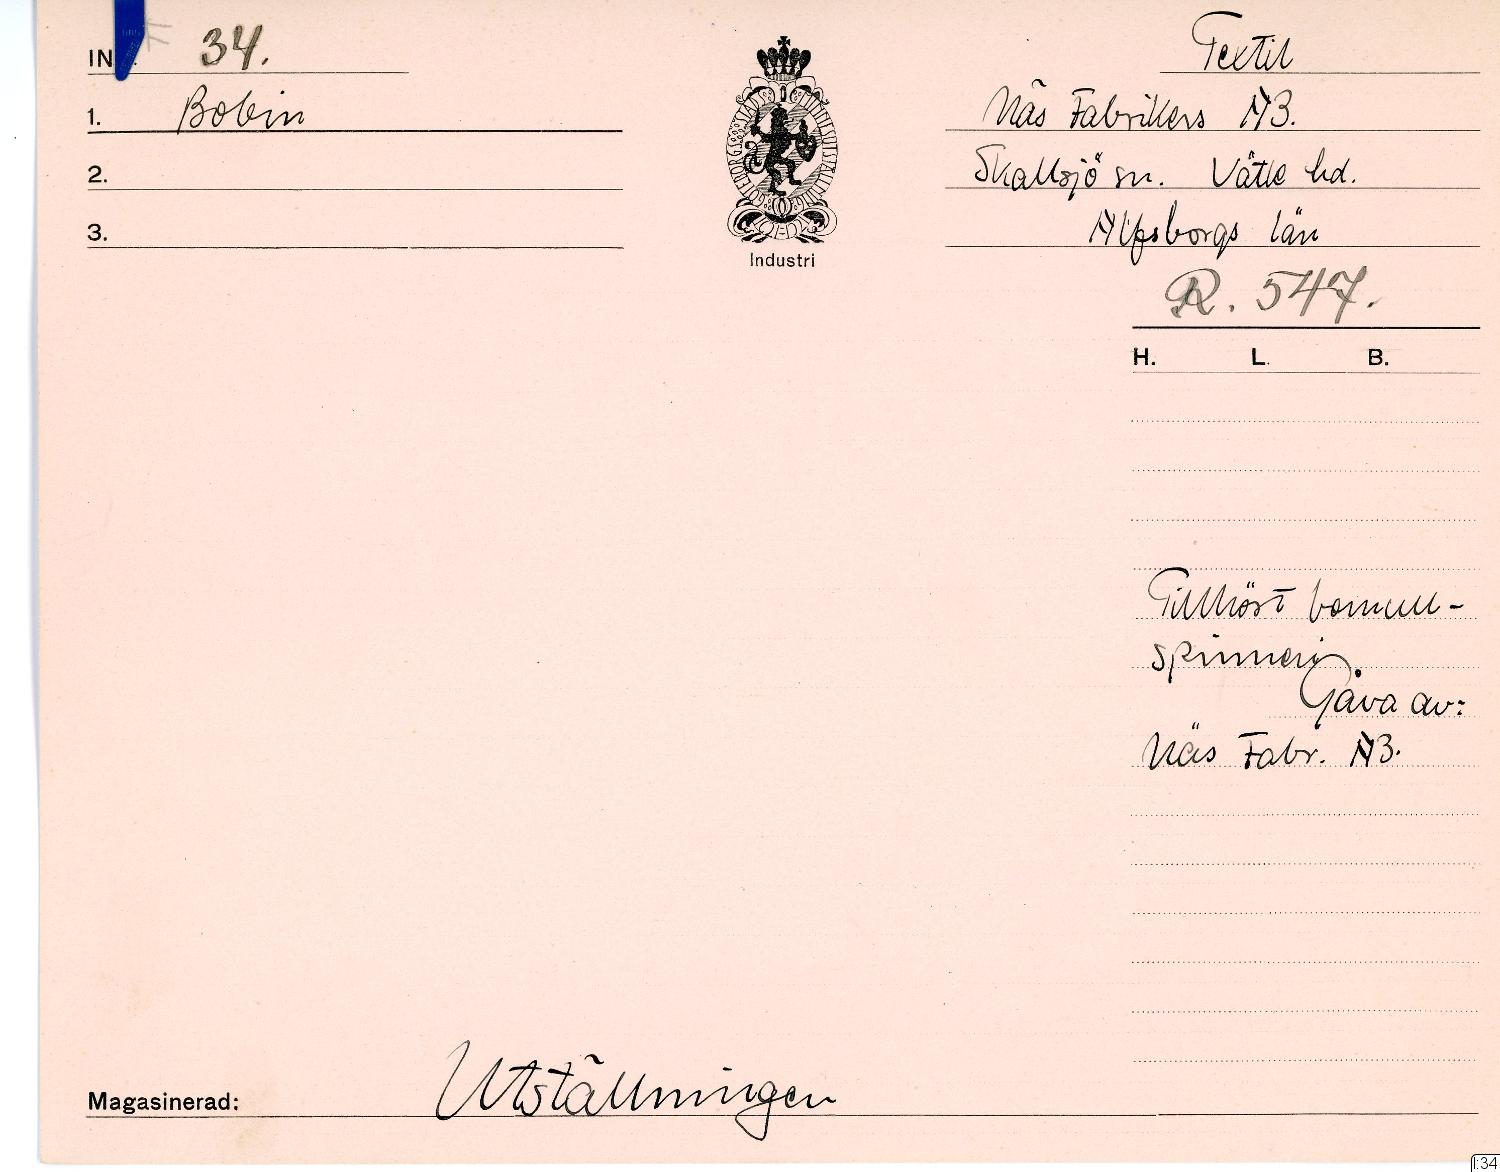 IN 34.
1. Bobin
2.
3.
GÖTEBORGS STADS
Industri
Textil
Näs Fabrikers AB.
Skallsjö sn. Vätle hd.
Älfsborgs län
R. 547.
H. L. B.
Tillhört bomull-
spinneri.
Gåva av:
Näs Fabr. AB.
Magasinerad: Utställningen
I:34